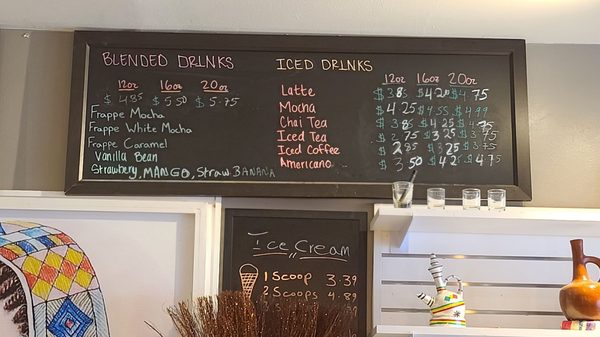 BLENDED DRINKS
12oz 16oz 20oz
$ 4.85 $ 5.50 $ 5.75
Frappe Mocha
Frappe White Mocha
Frappe Caramel
Vanilla Bean
Strawbery, MANGO, Straw BANANA
ICED DRINKS
12oz 16oz 20oz
Latte $ 3.85 $ 4.20 $ 4.75
Mocha $ 4.25 $ 4.55 $ 4.99
Chai Tea $ 3.85 $ 4.25 $ 4.75
Iced Tea $ 2.75 $ 3.25 $ 3.75
Iced Coffee $ 2.85 $ 3.25 $ 3.75
Americano $ 3.50 $ 4.2 $ 4.75
Ice Cream
1 SCOOP 3.39
2 SCOOPS 4.89